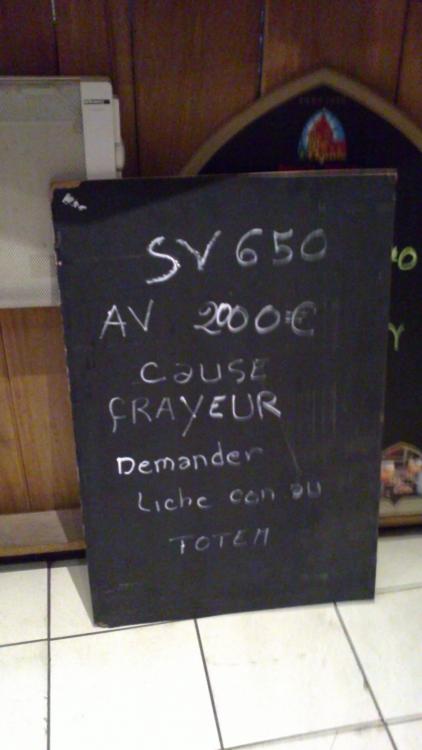 SV 650
AV 2000€
CAUSE
FRAYEUR
Demander
Liche con au
TOTEM